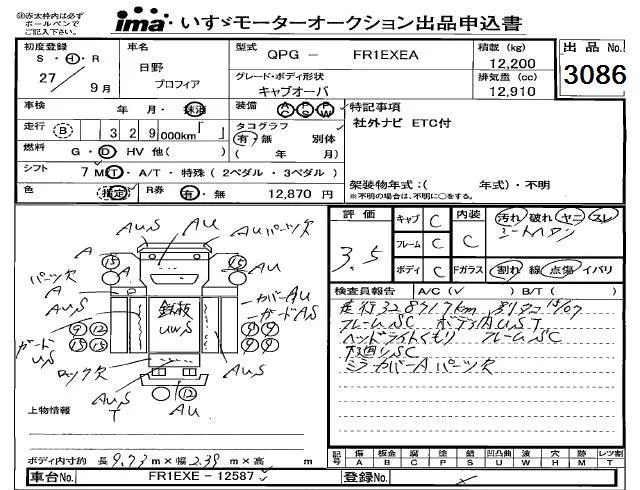 ◎赤太枠内は必ず
ボールペンで
ご記入下さい。
ima いすゞモーターオークション出品申込書
初度登録 車名 型式 QPG － FR1EXEA 積載 (kg) 出品 No.
S ・ H ・ R 日野 12,200 3086
27 9月 プロフィア グレード・ボディ形状 排気量 (cc)
キャブオーバ 12,910
車検 年 月・抹消 装備 AC PS PW 特記事項
走行 (B) 329,000km「 」 タコグラフ 社外ナビ ETC付
有・無 別体
燃料 G・D HV 他( ) ( 年 月)
シフト 7 MT・A/T・特殊 (2ペダル・3ペダル)
架装物年式：( 年式)・不明
色 R券 有・無 12,870 円 ※不明の場合は、不明に○をする。
評価 キャブ C 内装 汚れ 破れ ヤニ スレ
3.5 フレーム C C
ボディ C Fガラス 割れ 線 点傷 イバリ
AUS AU AU パーツ欠
A A
15 15 AU
パーツ欠 A
AUS 鉄板 UWS カバーAU
ガードAS
9 12 9 9
15 15 9 9
ガード
US AUS
ロック欠
AUS
T 12
AU
検査員報告 A/C (✓ ) B/T ( )
フレームSC ボディAUST
ヘッドライトくもり フレームSC
下廻りSC
ミラーカバーA パーツ欠
上物情報
ボディ内寸約 長 9.73 m×幅 2.39 m×高 m
記号 傷 板金 腐 塗 錆 凹凸曲 波 穴 跡 レンズ割
A B C P S U W H M T
車台No. FR1EXE － 12587 登録No.